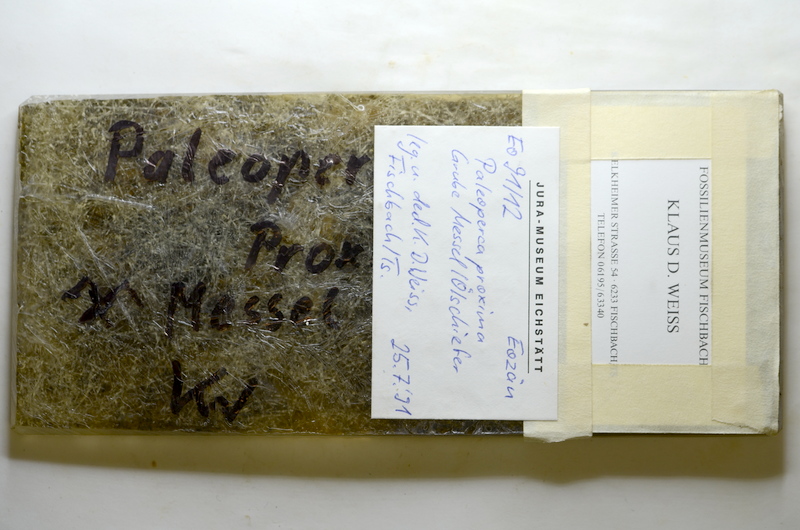 Paleoper
Prox
Massel
KW
JURA-MUSEUM EICHSTÄTT
Eo 91/12 Eozän
Paleoperca proxima
Grube Messel/Ölschiefer
leg. u. ded. K. D. Weiss,
Fischbach/Ts. 25.7.'91
FOSSILIENMUSEUM FISCHBACH
KLAUS D. WEISS
ELKHEIMER STRASSE 54 · 6233 FISCHBACH
TELEFON 06195/63340